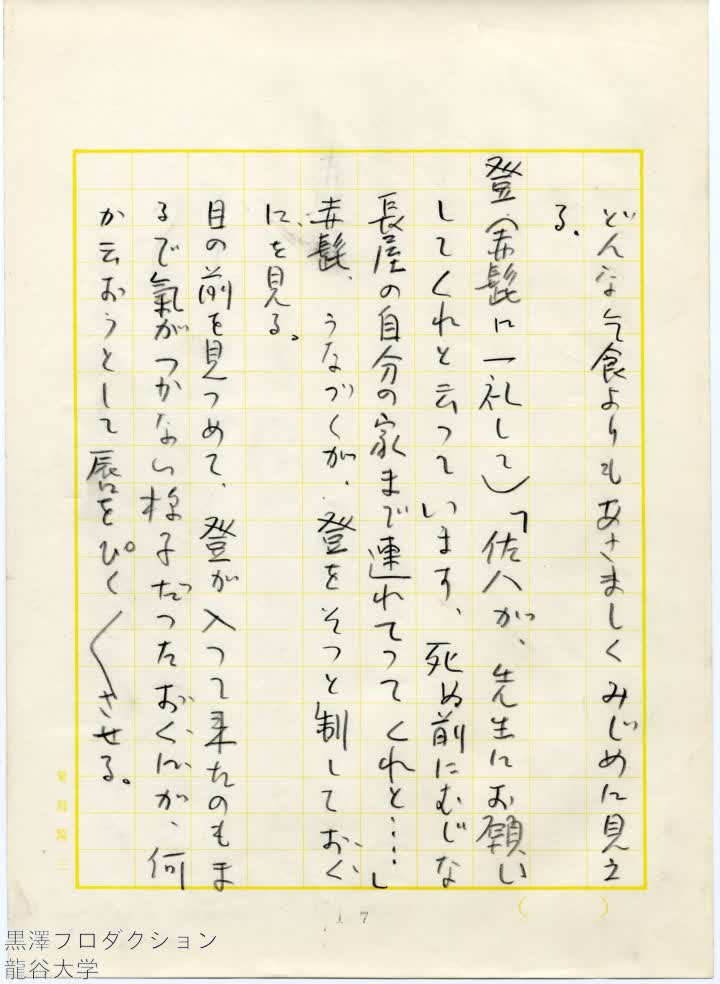 どんな乞食よりもあさましくみじめに見え
る。
登(赤髭に一礼して)「佐八が、先生にお願い
してくれと云つています、死ぬ前にむじな
長屋の自分の家まで連れてつてくれと‥‥」
赤髭、うなづくが、登をそつと制しておく
にを見る。
目の前を見つめて、登が入つて来たのもま
るで氣がつかない様子だつたおくにが、何
か云おうとして唇をぴく〱させる。
17
黒澤プロダクション
龍谷大学